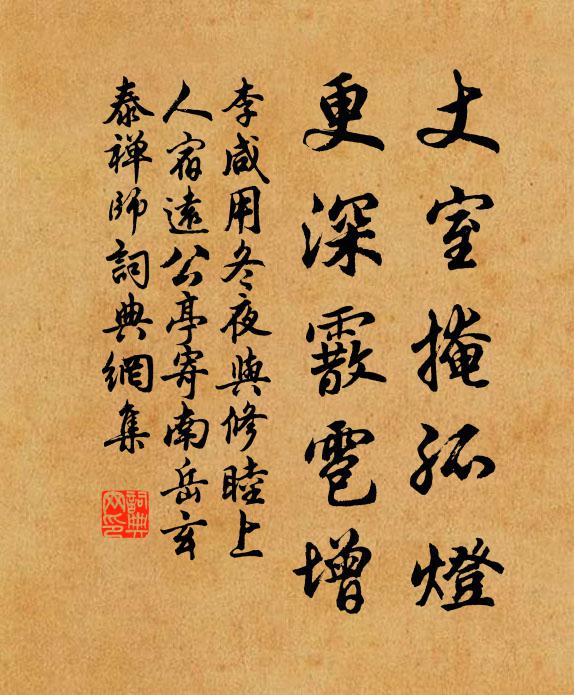 丈室掩孤燈
更深霰雹增
李咸用冬夜與修睦上
人宿遠公亭寄南岳玄
泰禅師詞典網集
詞典
网印